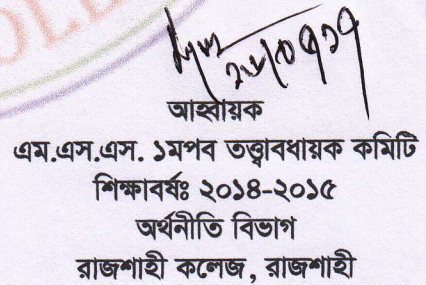 আহ্বায়ক
এম.এস.এস. ১মপব তত্ত্বাবধায়ক কমিটি
শিক্ষাবর্ষঃ ২০১৪-২০১৫
অর্থনীতি বিভাগ
রাজশাহী কলেজ, রাজশাহী